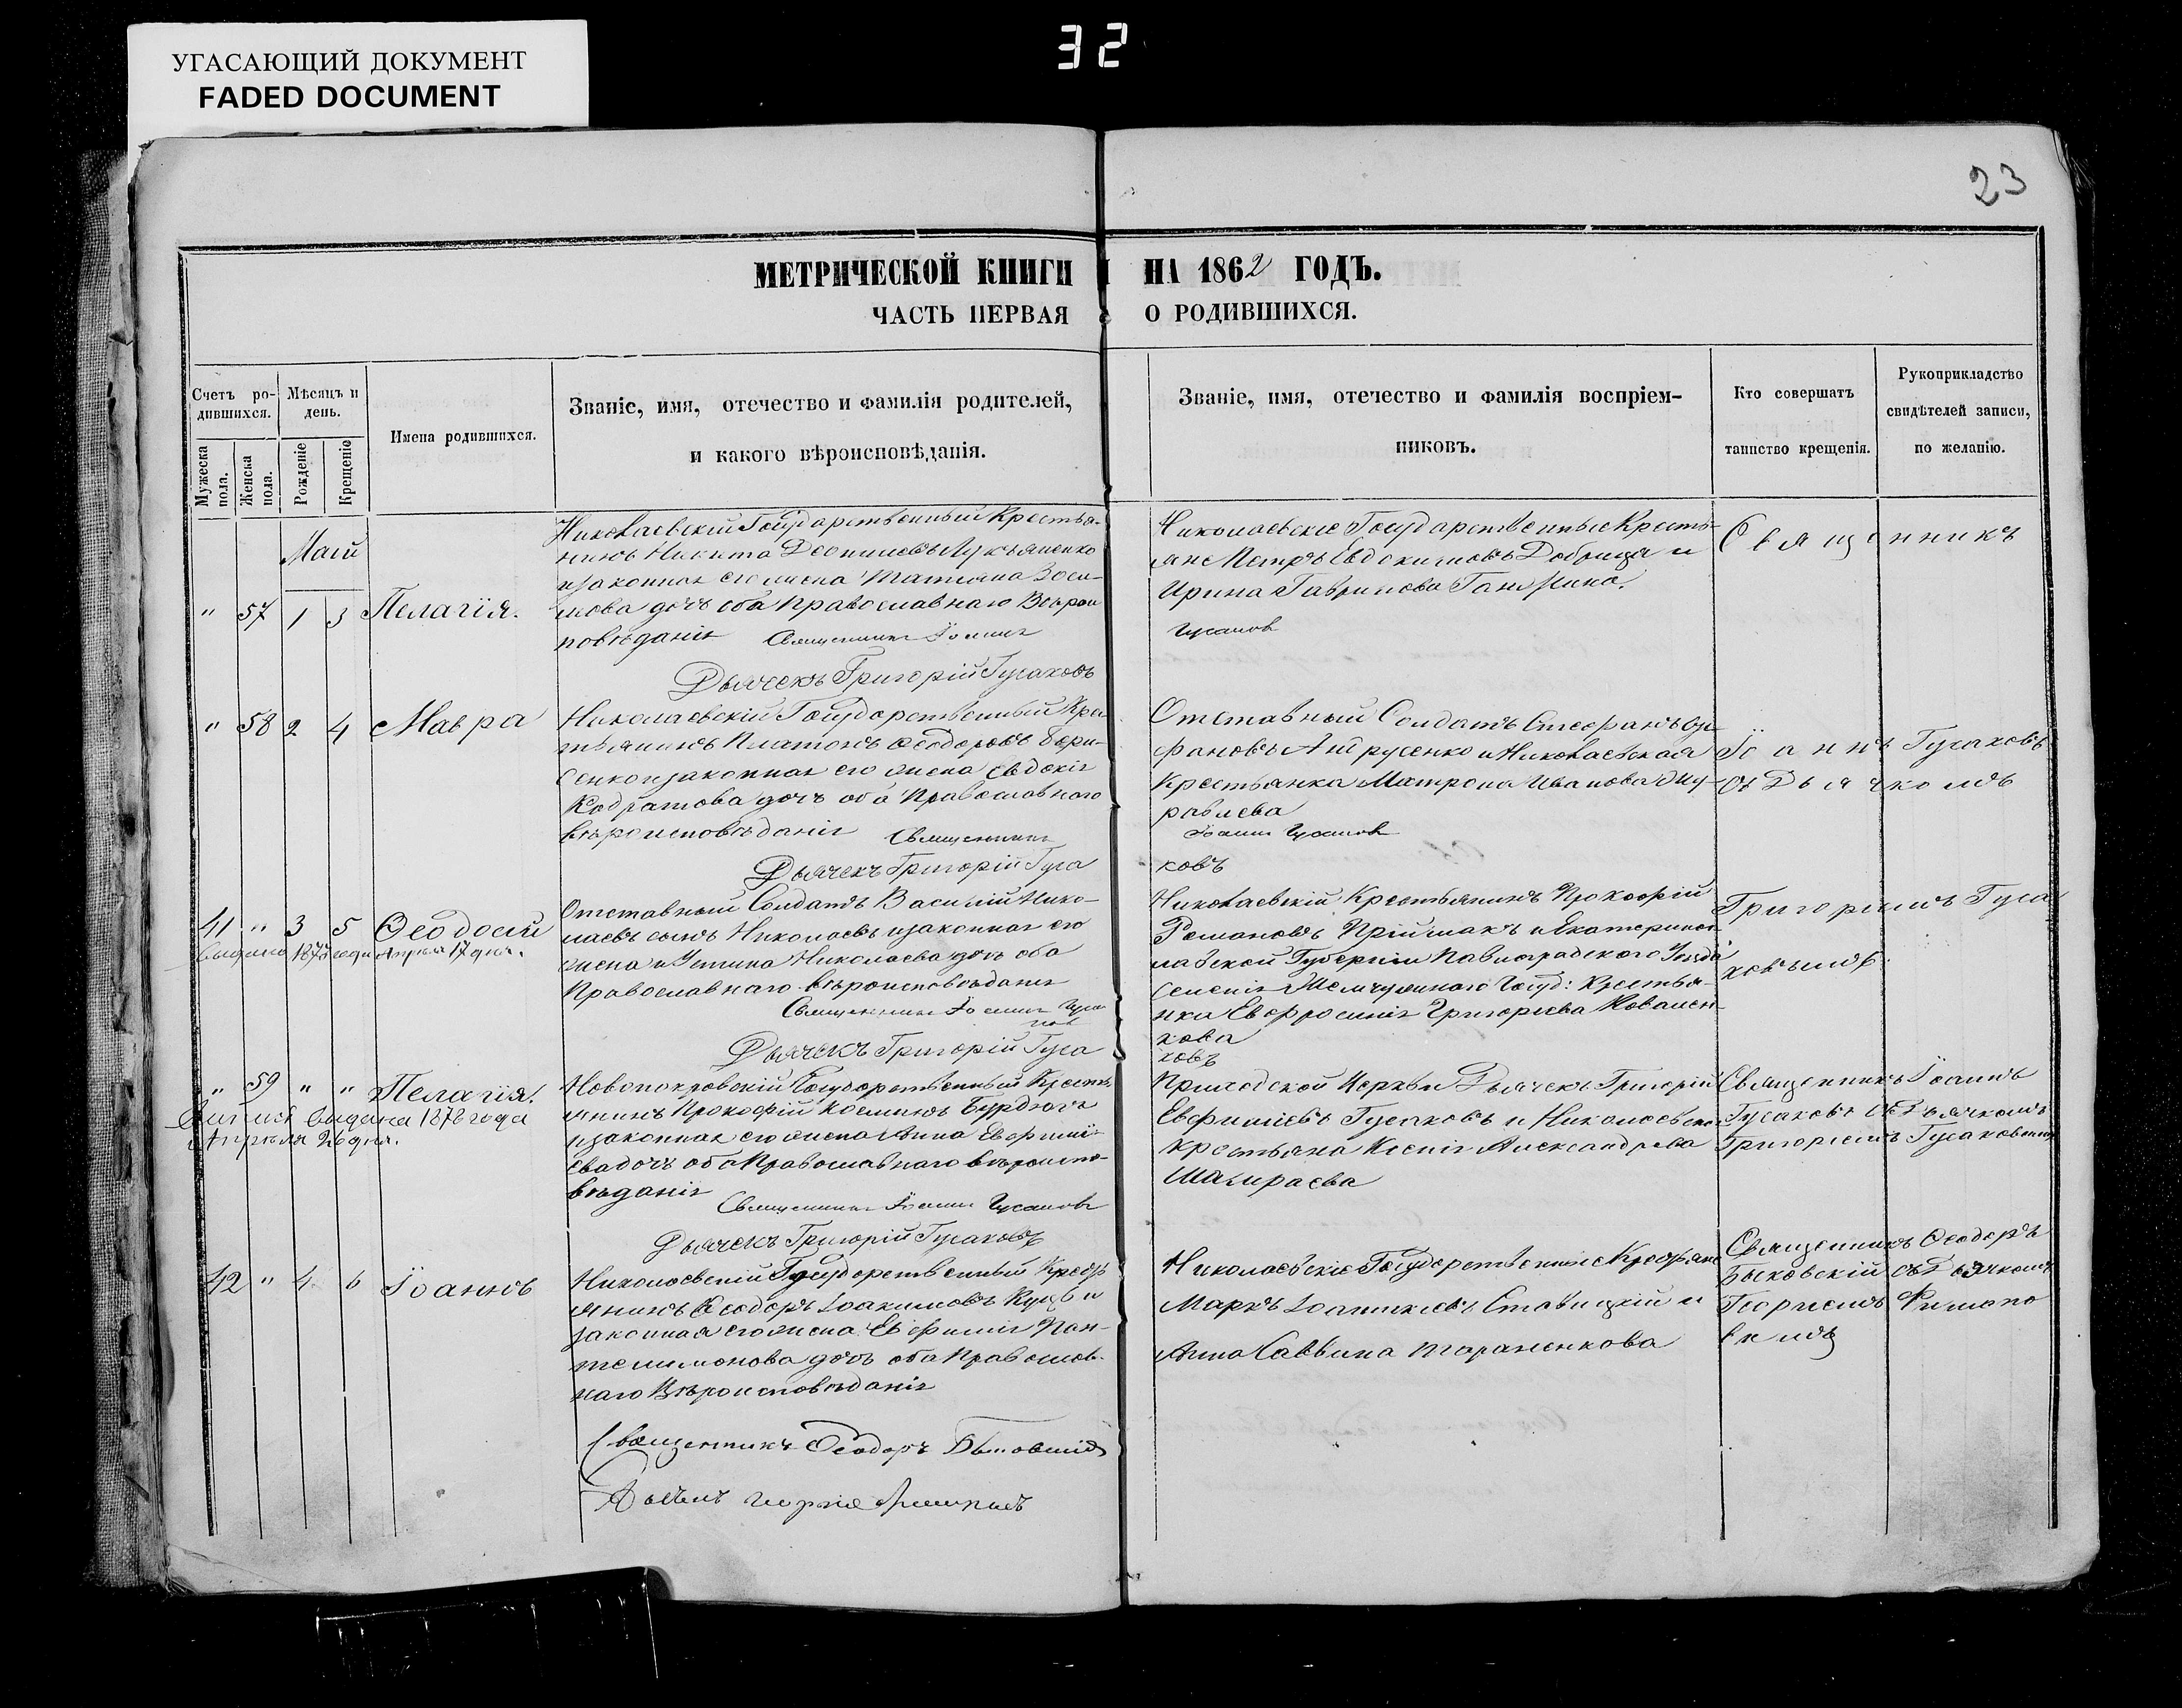 УГАСАЮЩИЙ ДОКУМЕНТ
FADED DOCUMENT
32
23
МЕТРИЧЕСКОЙ КНИГИ НА 1862 ГОДЪ.
ЧАСТЬ ПЕРВАЯ О РОДИВШИХСЯ.
Счетъ ро-
дившихся.
Мужеска
пола.
Женска
пола.
Мѣсяцъ и
день.
Рожденіе
Крещеніе
Имена родившихся.
Званіе, имя, отечество и фамилія родителей,
и какого вѣроисповѣданія.
Званіе, имя, отечество и фамилія воспріем-
никовъ.
Кто совершатъ
таинство крещенія.
Рукоприкладство
свидѣтелей записи,
по желанію.
Маій
" 57 1 3 Пелагія.
Николаевскій Государственный Крестья-
нинъ Никита Леонтіевъ Лукьяненко
и законная его жена Татіана Зоси-
мова дочь оба Православнаго Вѣрои
повѣданія Священникъ Іоаннъ
Дьячекъ Григорій Гусаковъ
Николаевскіе Государственные Кресть-
яне Петръ Евдокимовъ Добрица и
Ирина Гаврилова
Гусаковъ
Священникъ
" 58 2 4 Мавра
Николаевскій Государственный Кре-
тьянинъ Платонъ Ѳеодоровъ
и законная его жена Евдокія
Кодратова дочь оба Православнаго
вѣроисповѣданія Священникъ
Дьячекъ Григорій Гуса
Отставный Солдатъ Стефанъ
фановъ Андрусенко и Николаевская
Крестьянка Матрона Иванова Жу-
равлева
Іоаннъ Гусаковъ
ковъ
Іоаннъ Гусаковъ
съ Дьячкомъ
41 " 3 5 Ѳеодосій
Выдано 1875 года Апрѣля 17 дня.
Отставный Солдатъ Василій Нико-
лаевъ сынъ Николаевъ и законная его
жена Устина Николаева дочь оба
Православнаго вѣроисповѣданія
Священникъ Іоаннъ Гуса
ковъ
Дьячекъ Григорій Гуса
Николаевскій Крестьянинъ Прокофій
Романовъ Пріймакъ и Екатеринос
лавской Губерніи Павлоградскаго Уезда
Селенія Жемчужнаго Госуд: Крестья-
нка Евфросинія Григорьева Коваленк
кова
ковъ
Григоріемъ Гуса
ковымъ
" 59 " " Пелагія.
Выпись выдана 1878 года
Апрѣля 26 дня.
Новопокровскій Государственный Кресть
янинъ Прокофій Косминъ Бурдюгъ
и законная его жена Анна Евфимі-
ева дочь оба Православнаго вѣроиспо-
вѣданія
Священникъ Іоаннъ Гусаковъ
Дьячекъ Григорій Гусаковъ
Приходской Церкви Дьячекъ Григорій
Евфиміевъ Гусаковъ и Николаевская
Крестьяна Ксенія Александрова
Шамраева
Священникъ Іоаннъ
Гусаковъ съ Дьячкомъ
Григоріемъ Гусаковымъ
42 " 4 6 Іоаннъ
Николаевскій Государственный Крест
янинъ Ѳеодоръ Іоакимовъ Куцъ и
законная его жена Евфимія Пан-
телимонова дочь оба Православ-
наго Вѣроисповѣданія
Священникъ Ѳеодоръ Быковскій
Николаевскіе Государственные Крестьяне
Маркъ Іоанникіевъ Ставицкій и
Анна Саввина Тараненкова
Священникъ Ѳеодоръ
Быковскій съ Дьячкомъ
Георгіемъ Филипо
вимъ